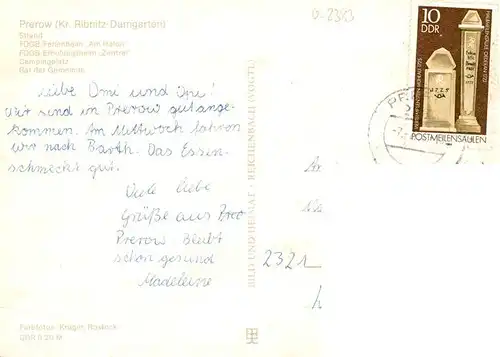 Prerow (Kr. Ribnitz-Damgarten)
Strand
FDGB-Ferienheim
FDGB-Erholungsheim „Zentral“
Campingplatz
Rat der Gemeinde
Liebe Omi und Opi!
Wir sind in Prerow gut ange-
kommen. Am Mittwoch fahren
wir nach Barth. Das Essen
schmeckt gut.
Viele liebe
Grüße aus
Prerow Bleibt
schön gesund
Madeleine
Farbfotos: Kruger, Rostock
BILD UND HEIMAT · REICHENBACH (VOGTL)
10
DDR
POSTMEILENSÄULEN
2321